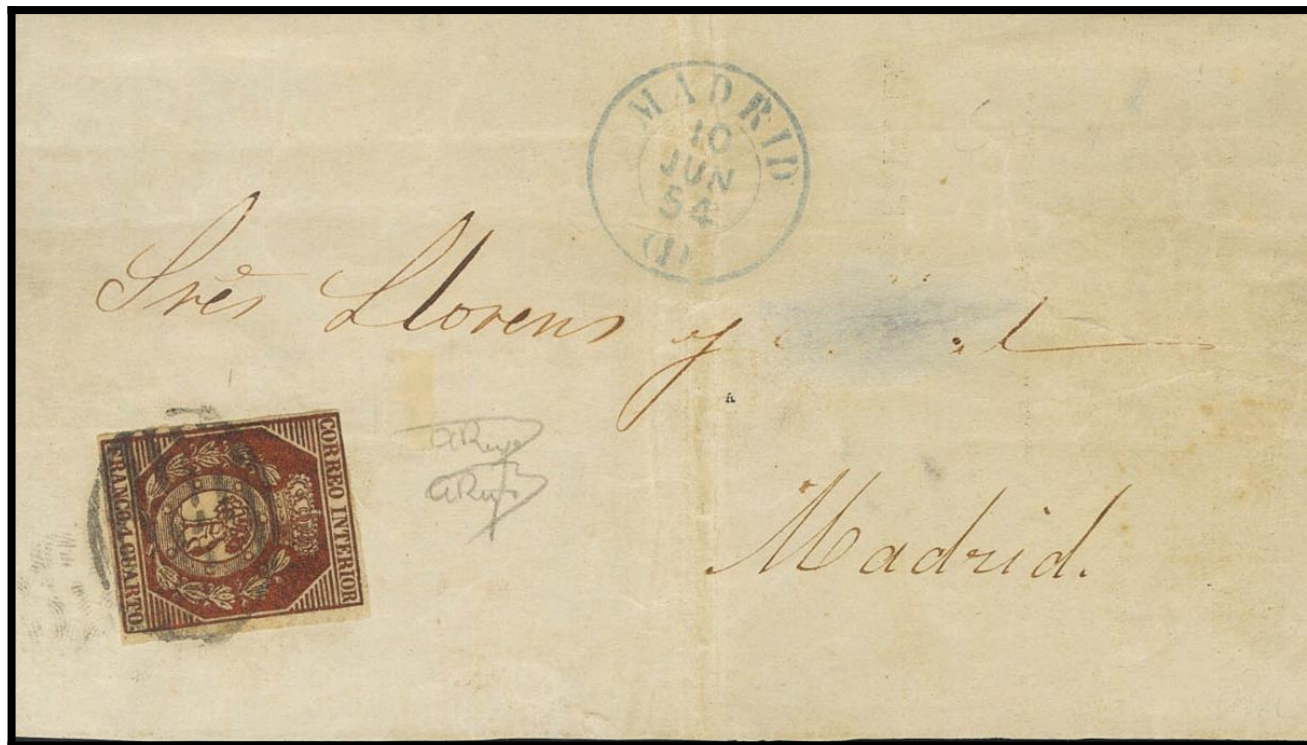 MADRID
10
JUN
54
(1)
Sres Llorens y
Madrid.
CORREO INTERIOR
FRANCO. 1 CUARTO.